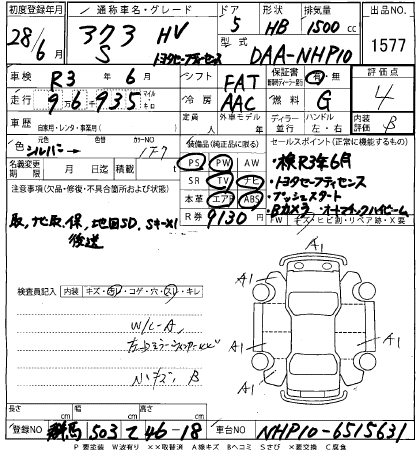 初度登録年月 通称車名・グレード ドア 形状 排気量 出品NO
28/6 373 HV S トヨタセーフティセンス 5 HB 1500cc 1577
型式 DAA-NHP10
車検 R3年6月 シフト FAT 保証書 有・無 評価点 4
走行 96千935 マイル キロ 冷房 AAC 燃料 G
車歴 自家用・レンタ・事業用( ) 定員 人 外車モデル 年 ディーラー 並行 ハンドル 左・右 内装 B
色 シルバー カラーNO 1F7 装備品(純正品に限る) セールスポイント(正常に機能するもの)
PS PW AW ・検R3年6月
名義変更期限 月 日 積載 t SR TV ナビ ・トヨタセーフティセンス
注意事項(欠品・修復・不具合箇所および状態) 本革 エアB ABS ・プッシュスタート
取、地取、保、地図SD、Sキーx1 R券 9130円 ・Bカメラ・オートマチックハイビーム
後送
検査員記入 内装 キズ・汚レ・コゲ・穴・スレ・キレ
W/L-A
ハンキズ、B
A1 A1 A1 A1 A1 A1
長さ cm 幅 cm 高さ cm
登録NO 群馬 503 て 46-18 車台NO NHP10-6515631
P 要塗装 W波有り ××取替済 A線キズ Bヘコミ Sさび ×要交換 C腐食